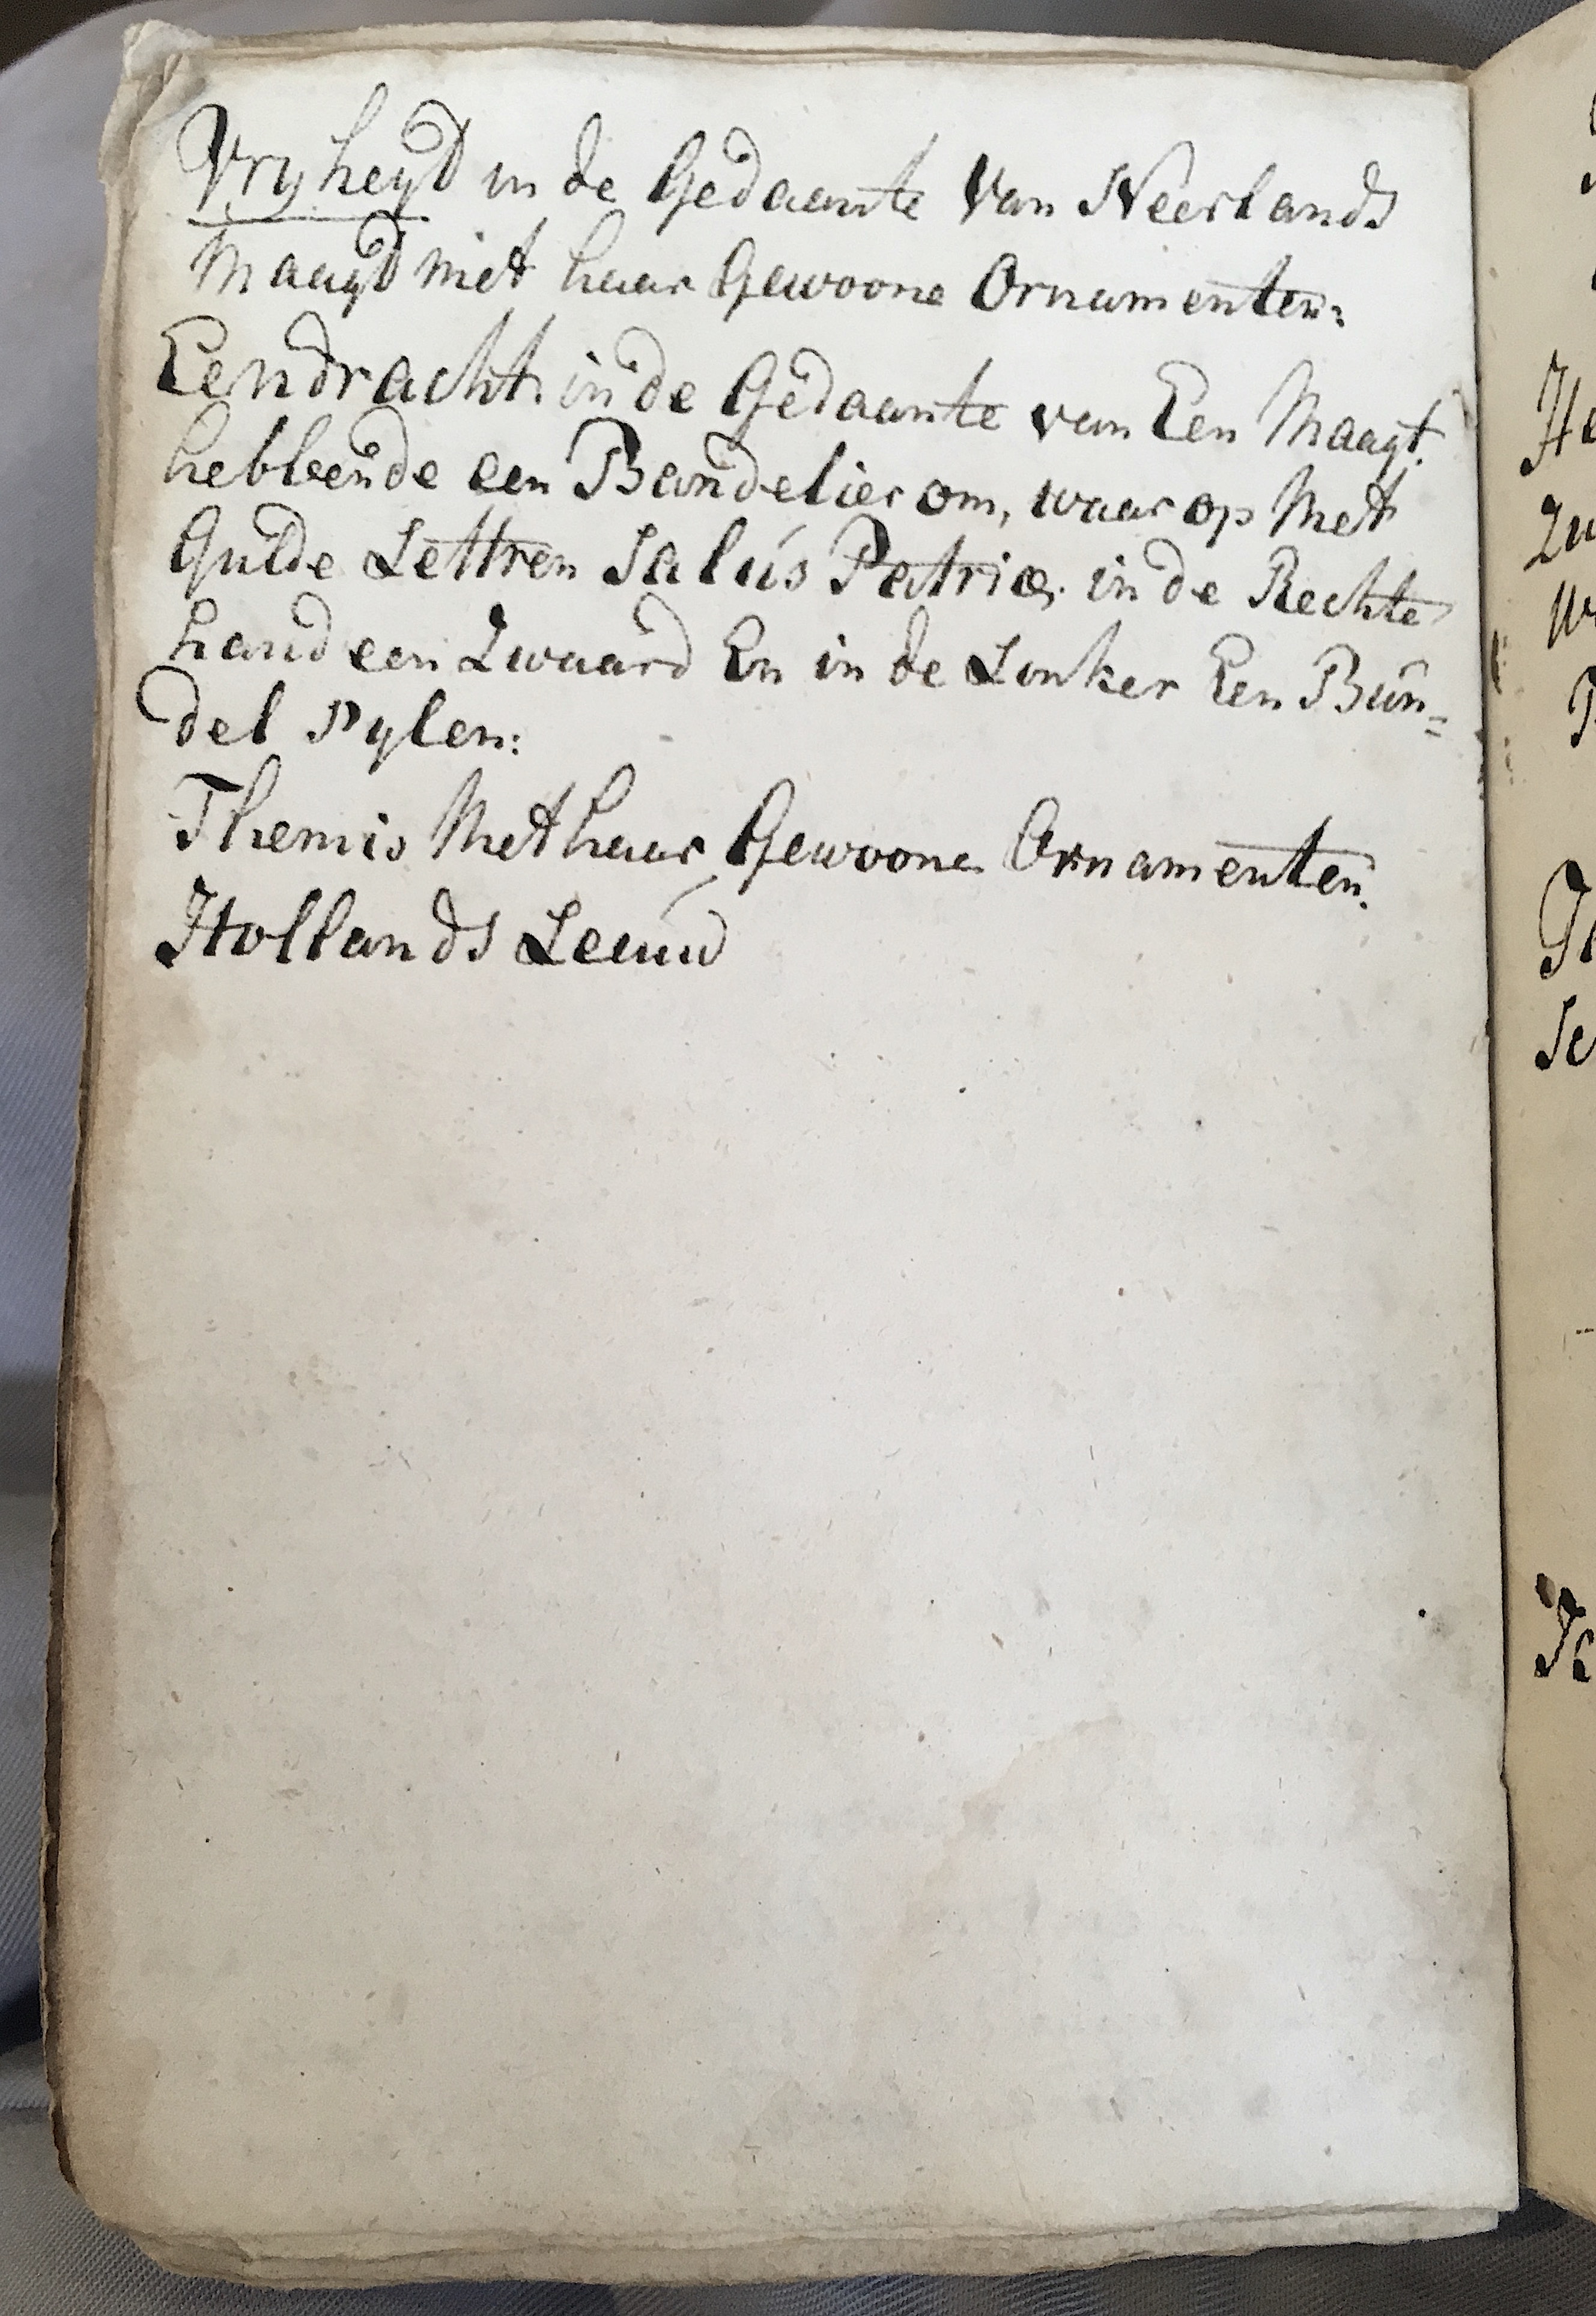 Vryheyd in de Gedaante Van Neerlands
Maagd met haar Gewoone Ornamenten:
Eendracht in de Gedaante van Een Maagt
hebbende een Bandelier om, waar op Met
Gulde Lettren Salus Patriæ, in de Rechte
hand een Zwaard En in de Linker Een Bun=
del Pylen:
Themis Met haar Gewoone Ornamenten.
Hollands Leeuw